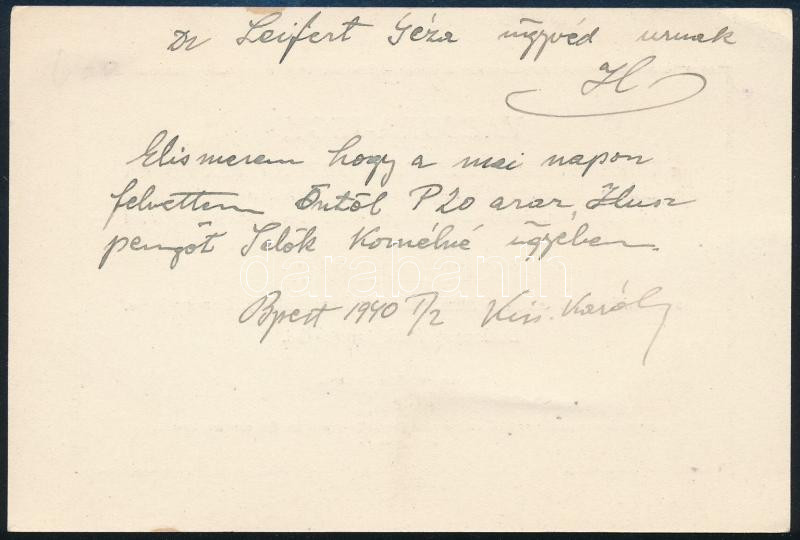 Dr Leifert Géza ügyvéd urnak
H
Elismerem hogy a mai napon
felvettem Öntöl P 20 azaz Husz
pengőt Selők Kornélné ügyében.
darabanth
Bpest 1940 I/2 Kiss Károly